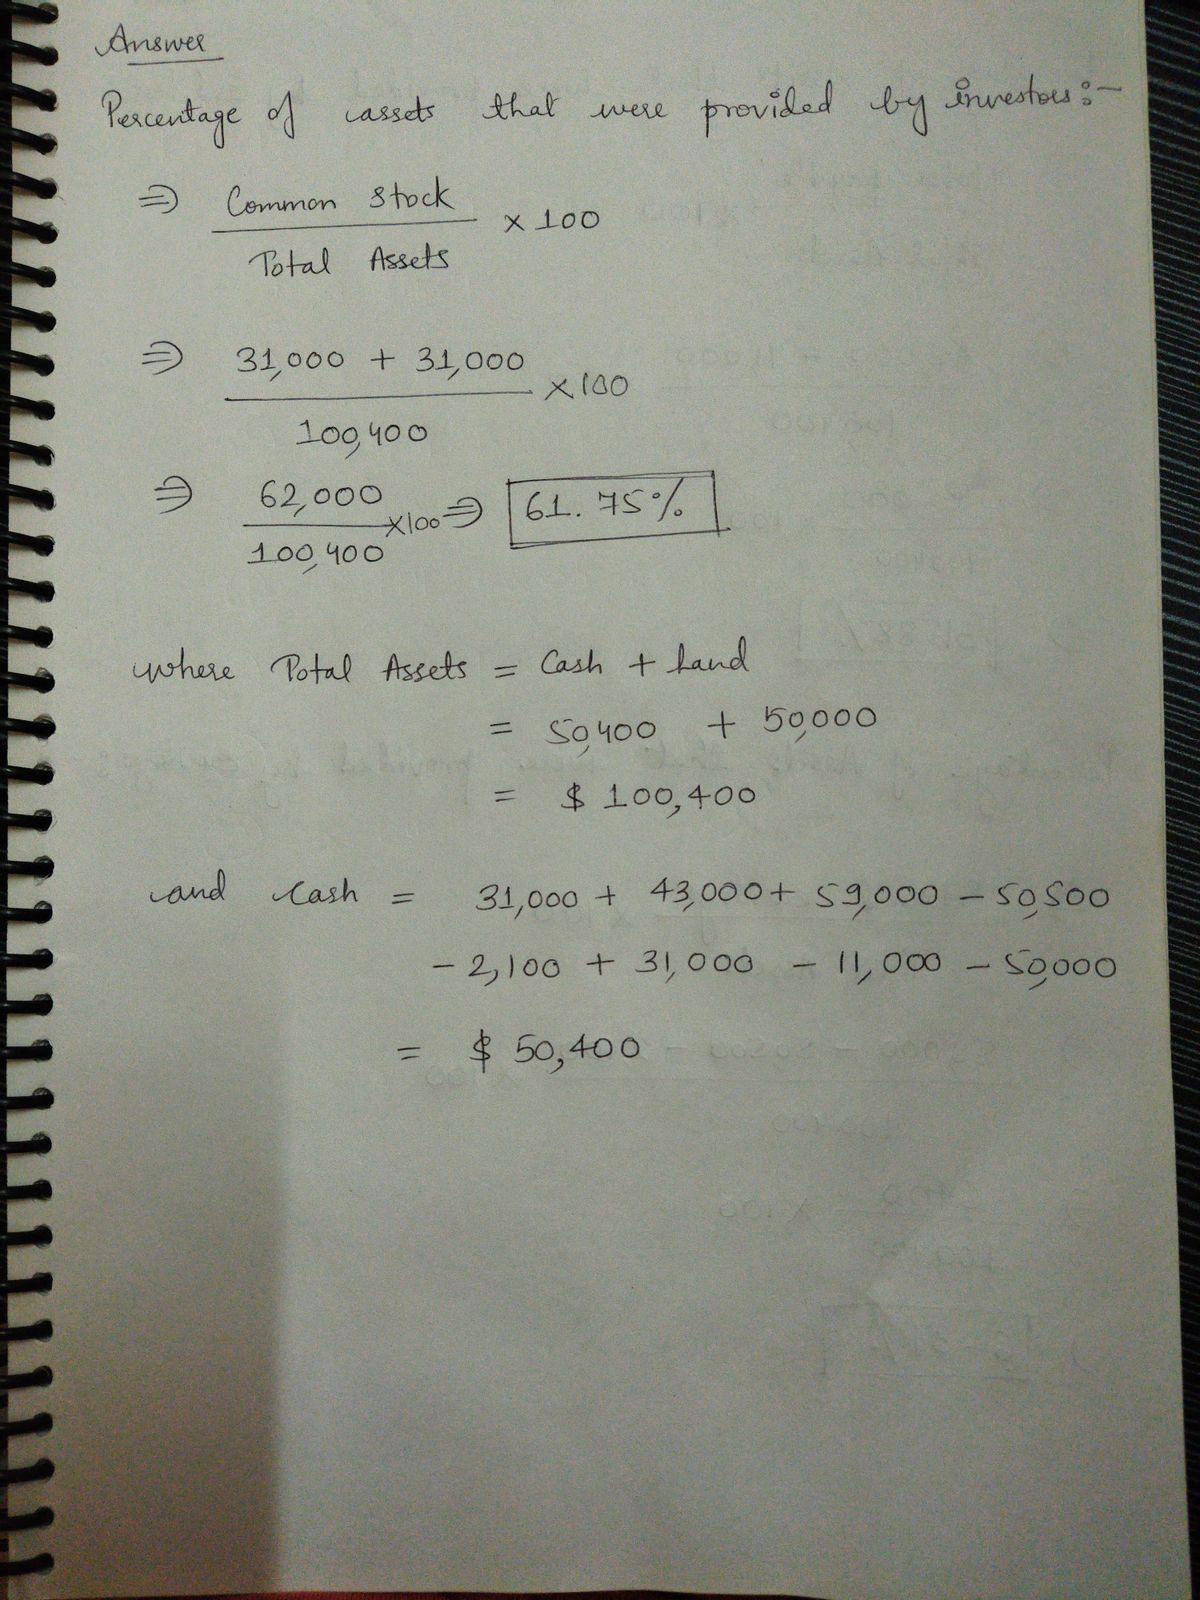 Answer
Percentage of assets that were provided by investors :-
⇒ Common Stock
Total Assets
× 100
⇒ 31,000 + 31,000
100,400
×100
⇒ 62,000
100,400
×100 ⇒ 61.75%
where Total Assets = Cash + Land
= 50,400 + 50,000
= $ 100,400
and Cash = 31,000 + 43,000 + 59,000 - 50,500
- 2,100 + 31,000 - 11,000 - 50,000
= $ 50,400